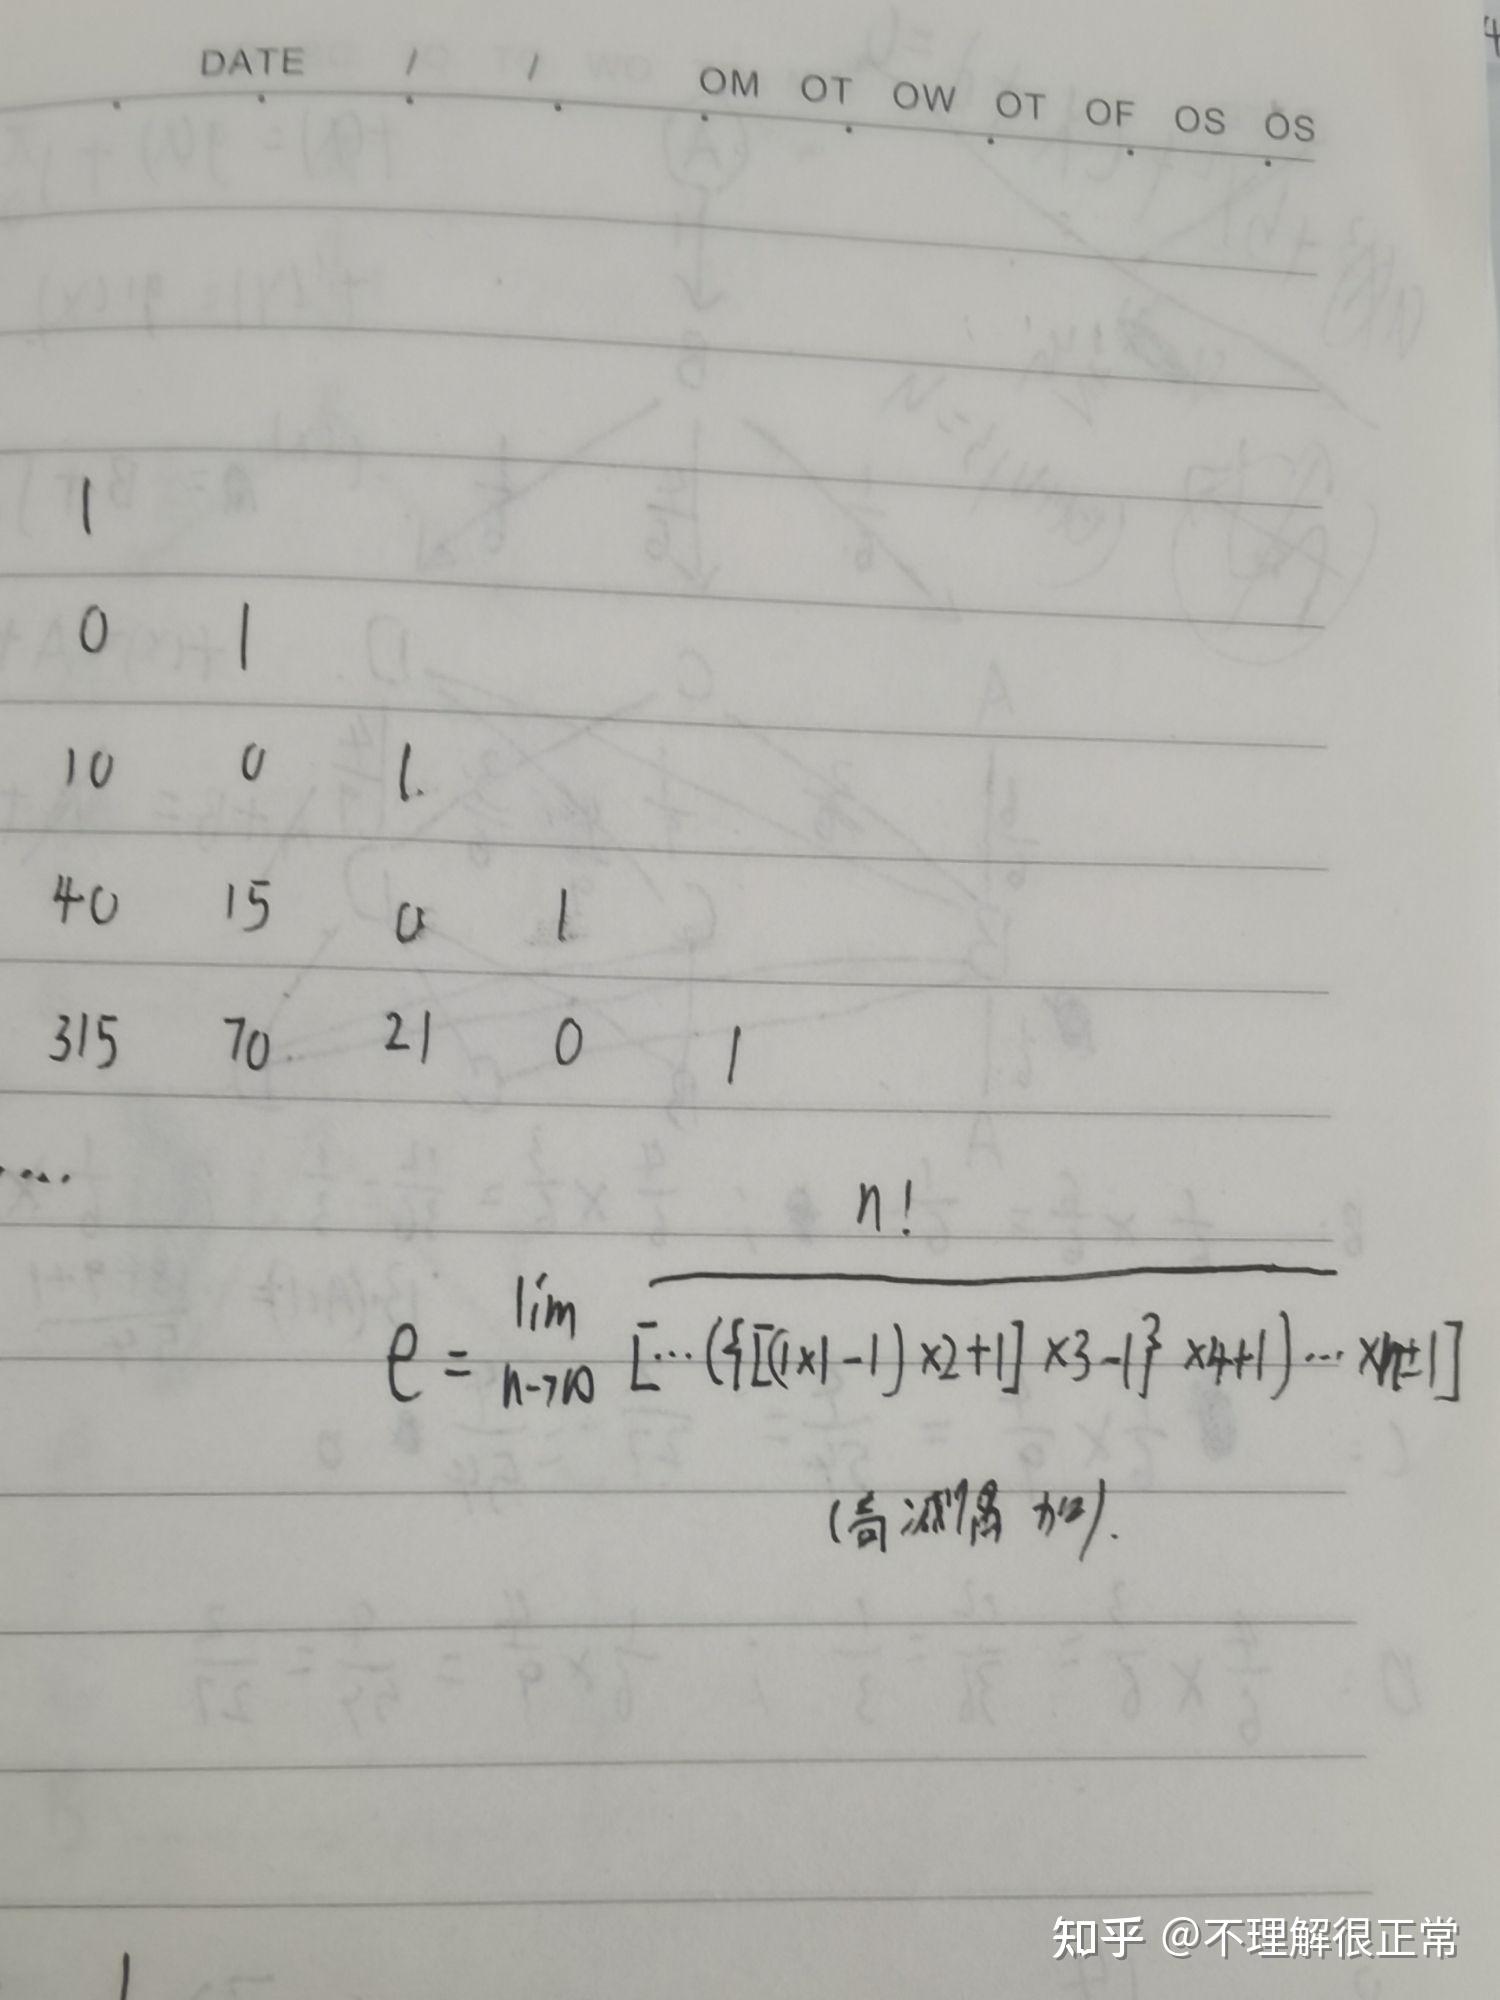 DATE / /
OM OT OW OT OF OS OS
1
0 1
10 0 1.
40 15 0 1
315 70 21 0 1
....
n!
e = lim [···({[(1×1-1)×2+1]×3-1}×4+1)···×n±1]
n→∞
(奇减偶加).
1
知乎 @不理解很正常